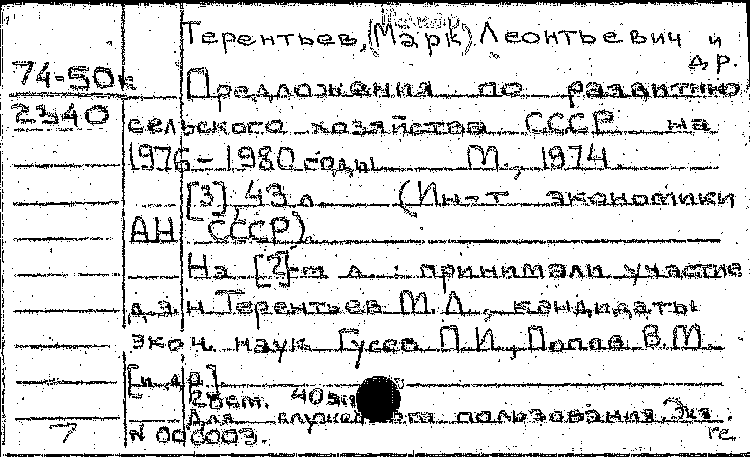 Терентьев, (Марк) Леонтьевич и
др.
74-50к
Предложения по развитию
2340
сельского хозяйства СССР на
1976-1980 годы М., 1974.
[3], 43 л. (Ин-т экономики
АН СССР).
На [2]-м л.: принимали участие
д.э.н. Терентьев М.Л., кандидаты
экон. наук Гусев П.И., Попов В.М.
[и др.]
28 см. 40 эк
Для пользования. Экз.
7 N 000003. ге